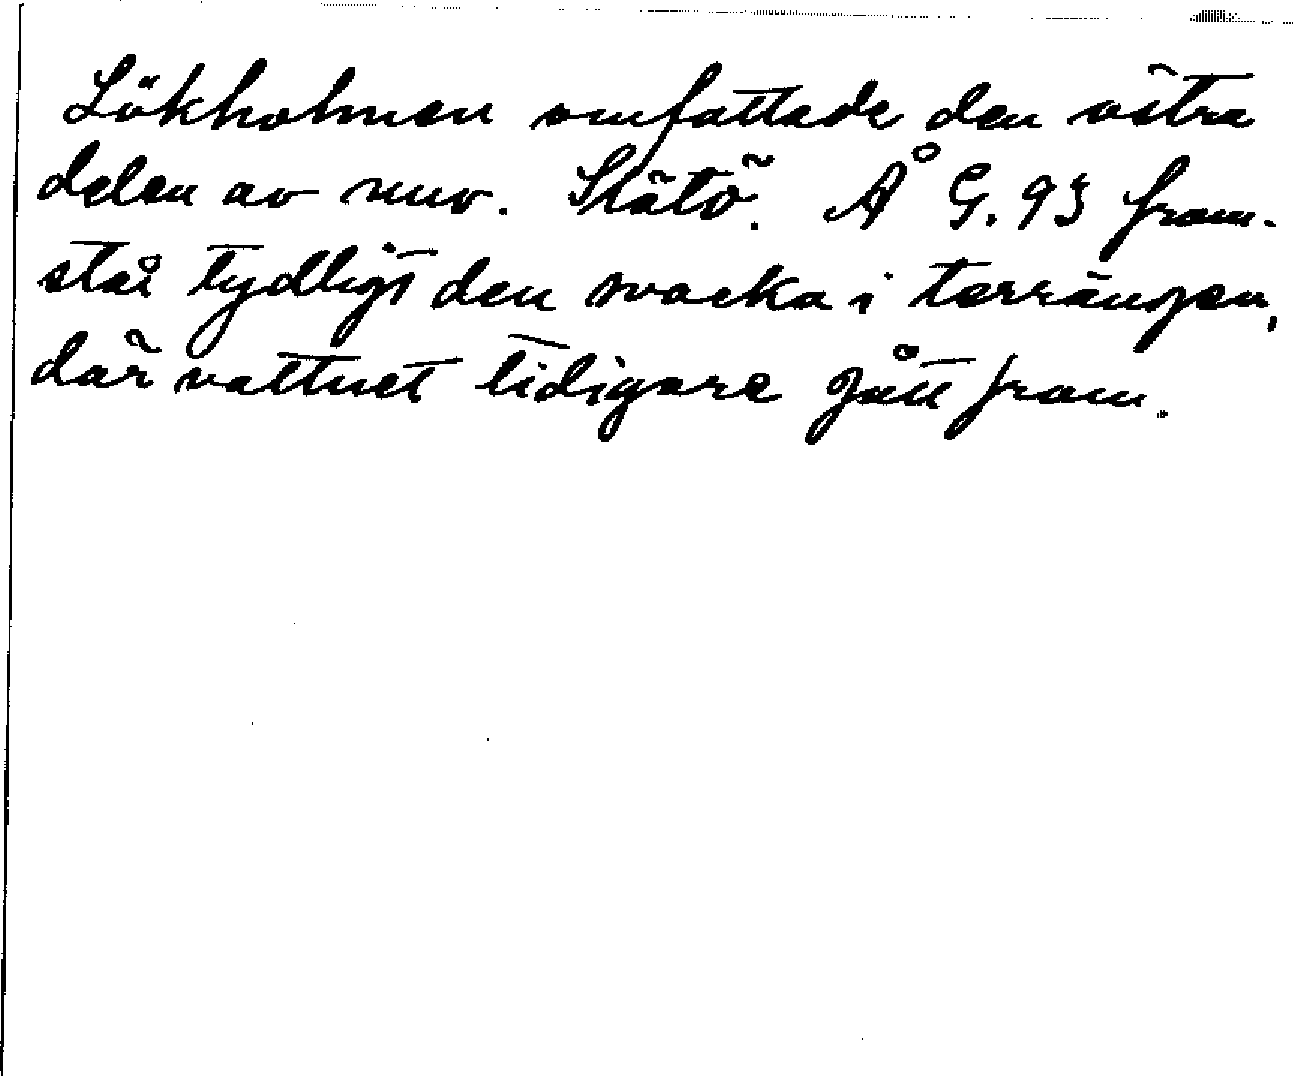 Lökholmen omfattade den östra
delen av nuv. Slätö. Å G. 93 fram-
står tydligt den svacka i terrängen,
där vattnet tidigare gått fram.